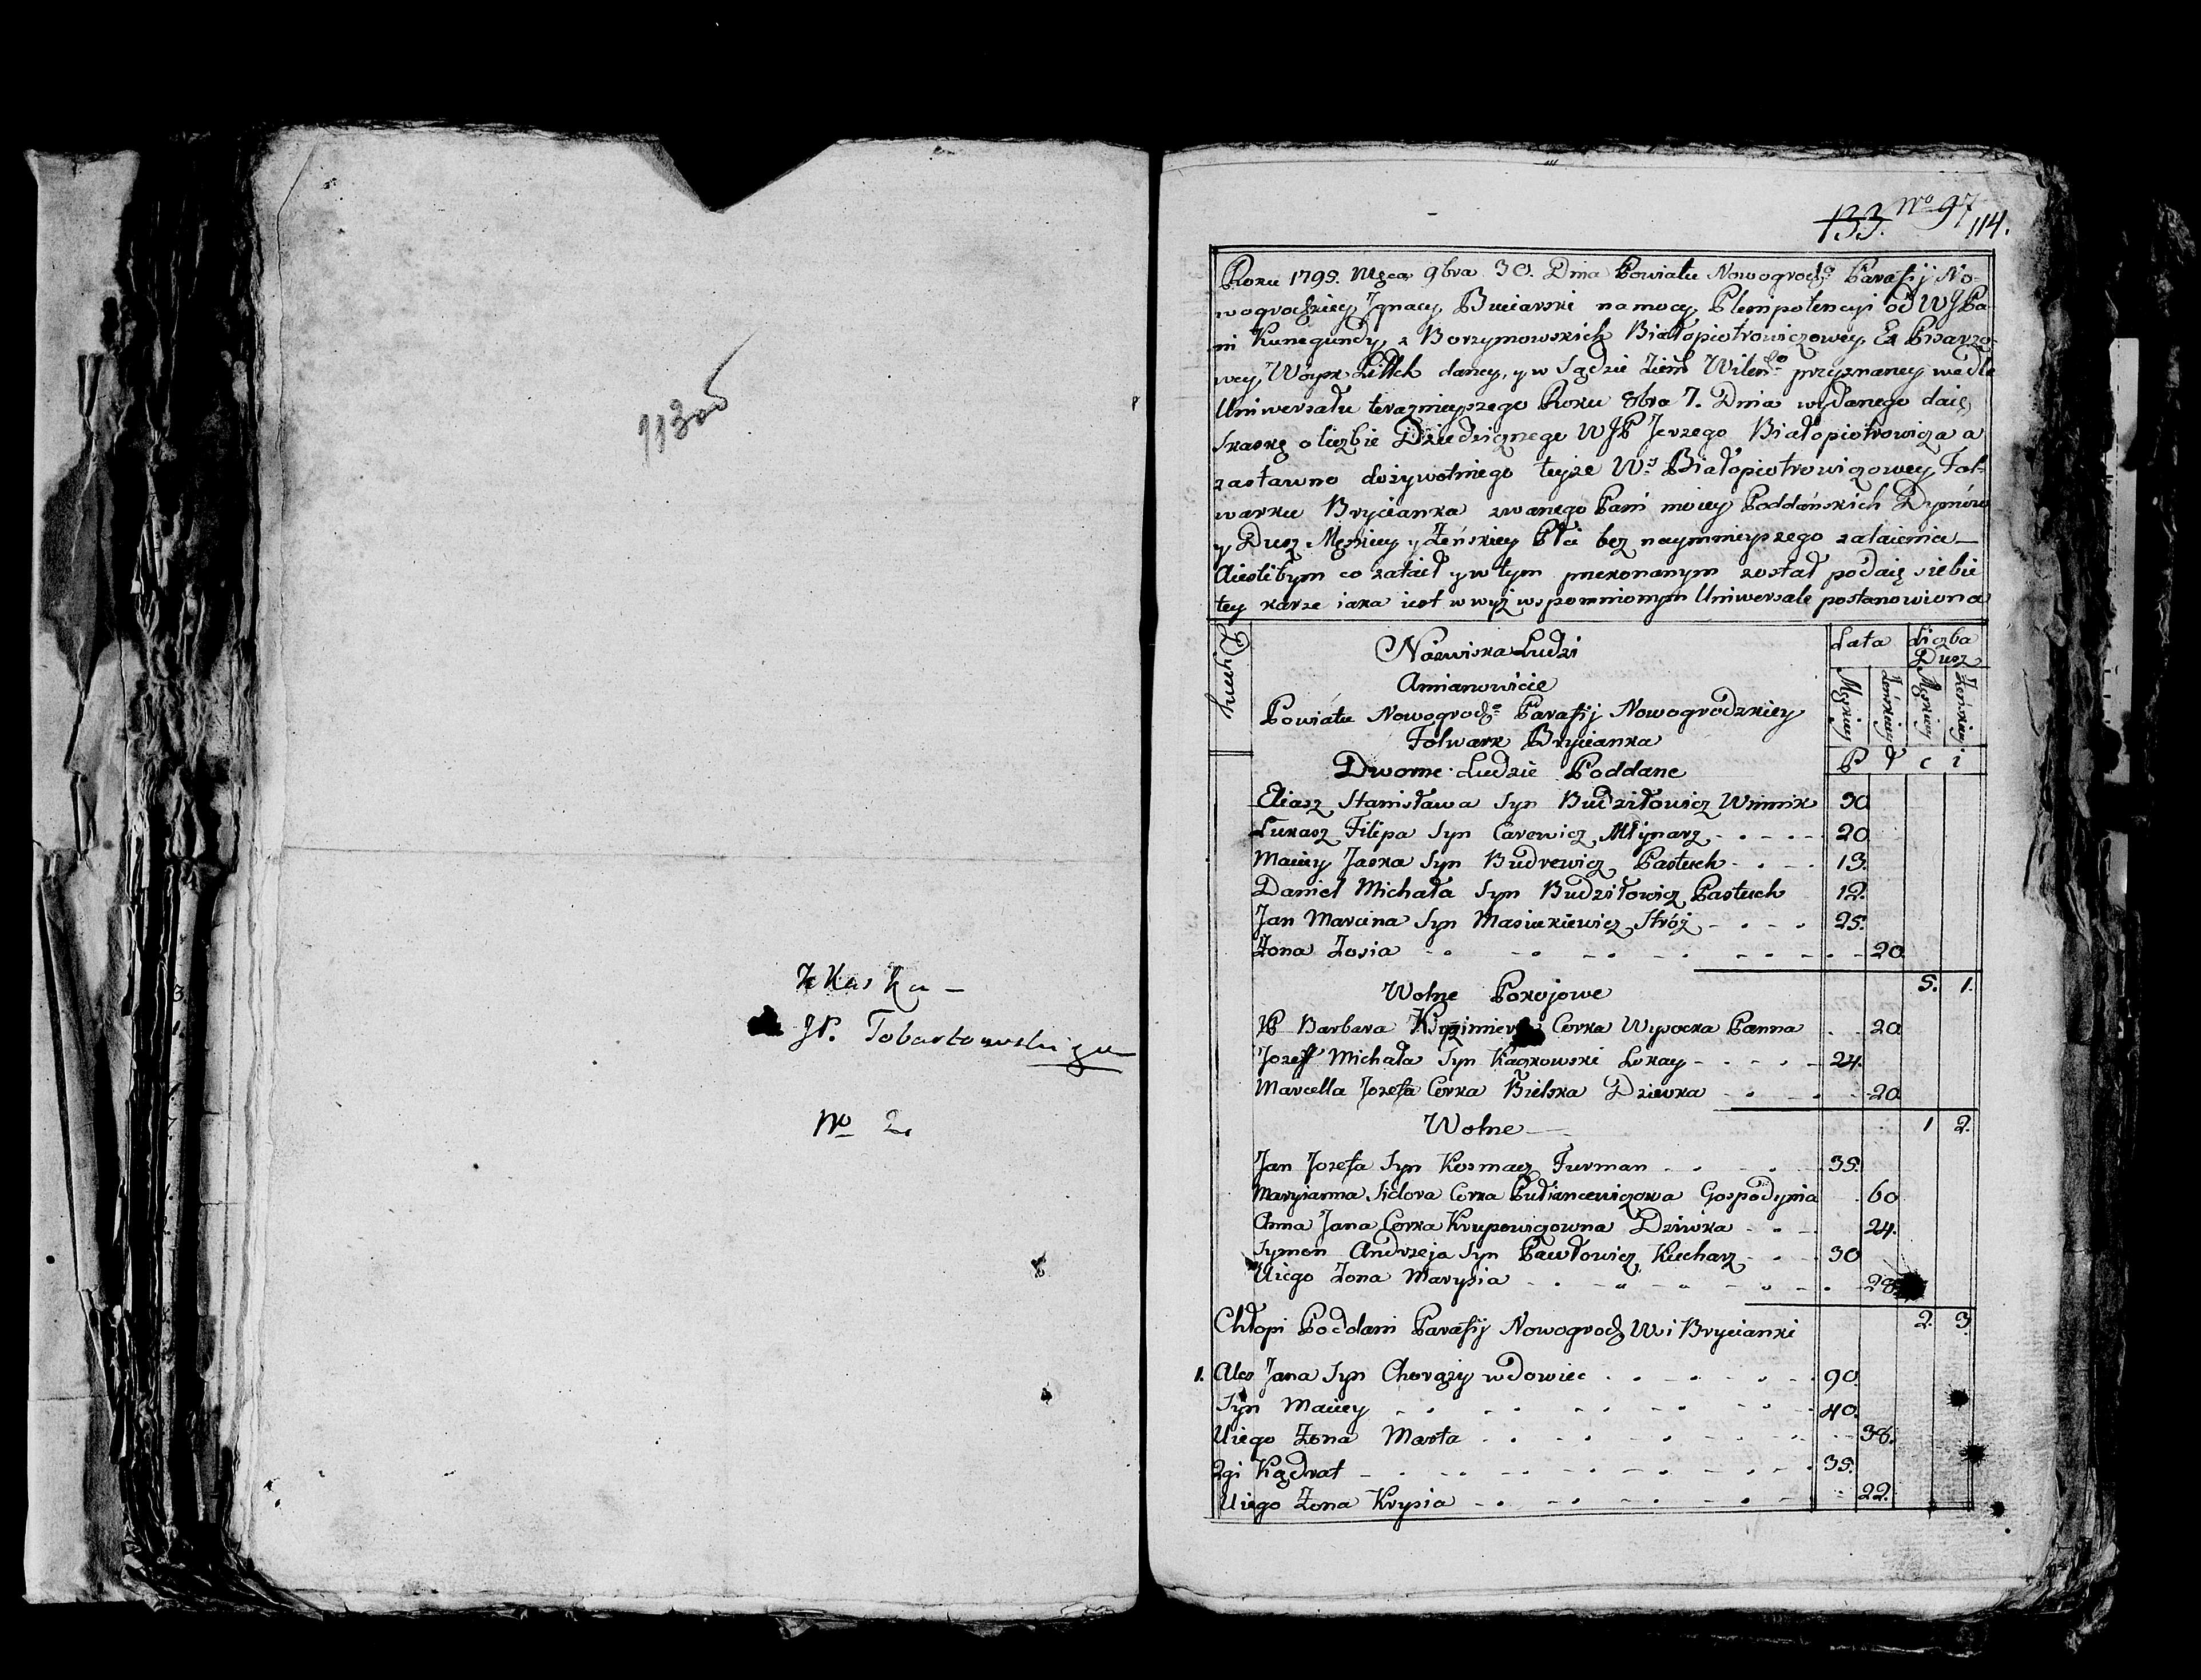 113 об
Skaska –
JP. Tobartowskiego
No 2.
133. No 97
114.
Roku 1795. Męca 9bra 30. Dnia Powiatu Nowogrodo Parafij No-
wogrodzkiey Jgnacy Buciarski na mocy Plenipotencyi od WJPa-
ni Kunegundy z Borzymowskich Białopiotrowiczowey Ex Pisarzo-
wey Woysk Littch daney, y w Sądzie Ziem Wileno przyznaney wedle
Uniwersału terazniejszego Roku 8bra 7. Dnia wydanego daię
Skaskę o liczbie Dziedzicznego WJP Jerzego Białopiotrowicza a
zastawno dożywotniego teyże Wy Białopiotrowiczowey Fol-
warku Brycianka zwanego Pani moiey Poddańskich Dymów
y Dusz Męskiey y Żeńskiey Płci bez naymnieyszego zataienia –
A ieslibym co zataił y w tym przekonanym został podaię siebie
tey karze iaka iest w wyż wspomnionym Uniwersale postanowiona
Dymy
Nazwiska Ludzi
Amianowicie
Powiatu Nowogrodo Parafij Nowogrodzkiey
Folwark Brycianka
Lata
Liczba Dusz
Męskiey
Żeńskiey
Męskiey
Żeńskiey
P ł c i
Dworne Ludzie Poddane
Eliasz Stanisława Syn Budziłowicz Winnik 30
Łukasz Filipa Syn Carewicz Młynarz 20
Maciey Jaska Syn Budrewicz Pastuch 13.
Daniel Michała Syn Budziłowicz Pastuch 12.
Jan Marcina Syn Masiukiewicz Stróż 25.
Żona Zosia 20
5. 1.
Wolne Pokojowe
JP Barbara Corka Wysocka Panna 20
Jozef Michała Syn Kaczkowski Lokay 24.
Marcella Jozefa Corka Bielska Dziewka 20
1 2.
Wolne
Jan Jozefa Syn Kosmacz Furman 35.
Maryianna Sidora Corka Putiancewiczowa Gospodynia 60
Anna Jana Corka Krupowiczowna Dziewka 24.
Symon Andrzeja Syn Pawłowicz Kucharz 30
U iego Żona Marysia 28
2. 3.
Chłopi Poddani Parafij Nowogrodz Wsi Brycianki
1. Alex Jana Syn Chorąży wdowiec 90
Syn Maciey 40.
U iego Żona Marta 38.
2gi Kądrat 35.
U iego Żona Krysia 22.